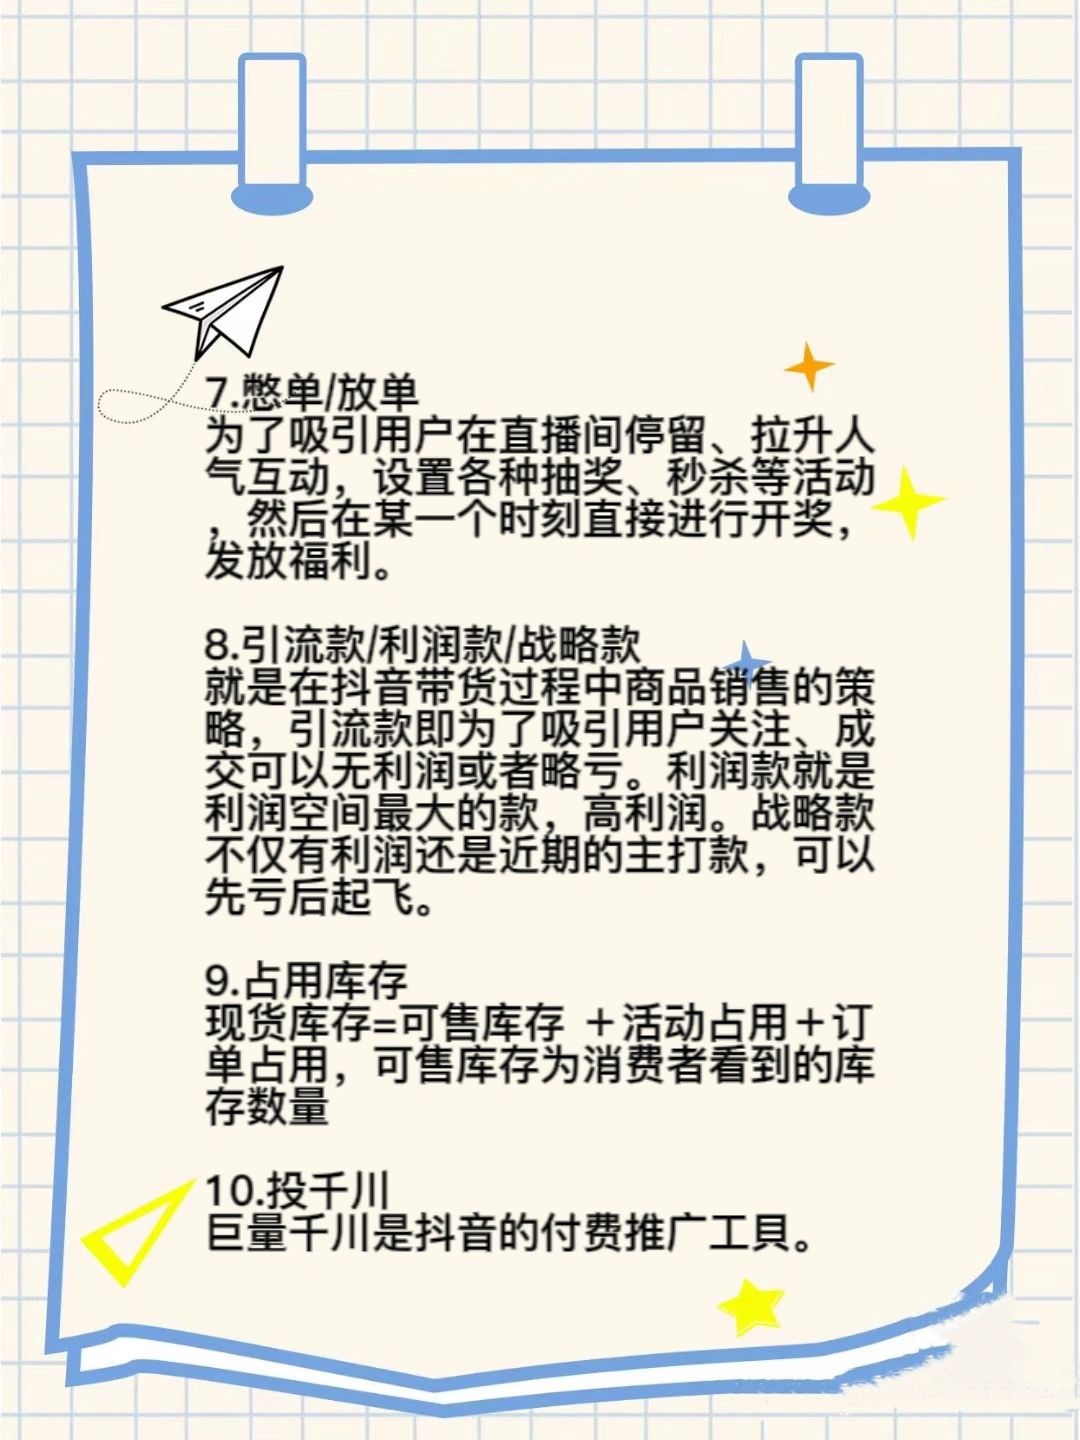 7.憋单/放单
为了吸引用户在直播间停留、拉升人
气互动，设置各种抽奖、秒杀等活动
，然后在某一个时刻直接进行开奖，
发放福利。
8.引流款/利润款/战略款
就是在抖音带货过程中商品销售的策
略，引流款即为了吸引用户关注、成
交可以无利润或者略亏。利润款就是
利润空间最大的款，高利润。战略款
不仅有利润还是近期的主打款，可以
先亏后起飞。
9.占用库存
现货库存=可售库存 ＋活动占用＋订
单占用，可售库存为消费者看到的库
存数量
10.投千川
巨量千川是抖音的付费推广工具。